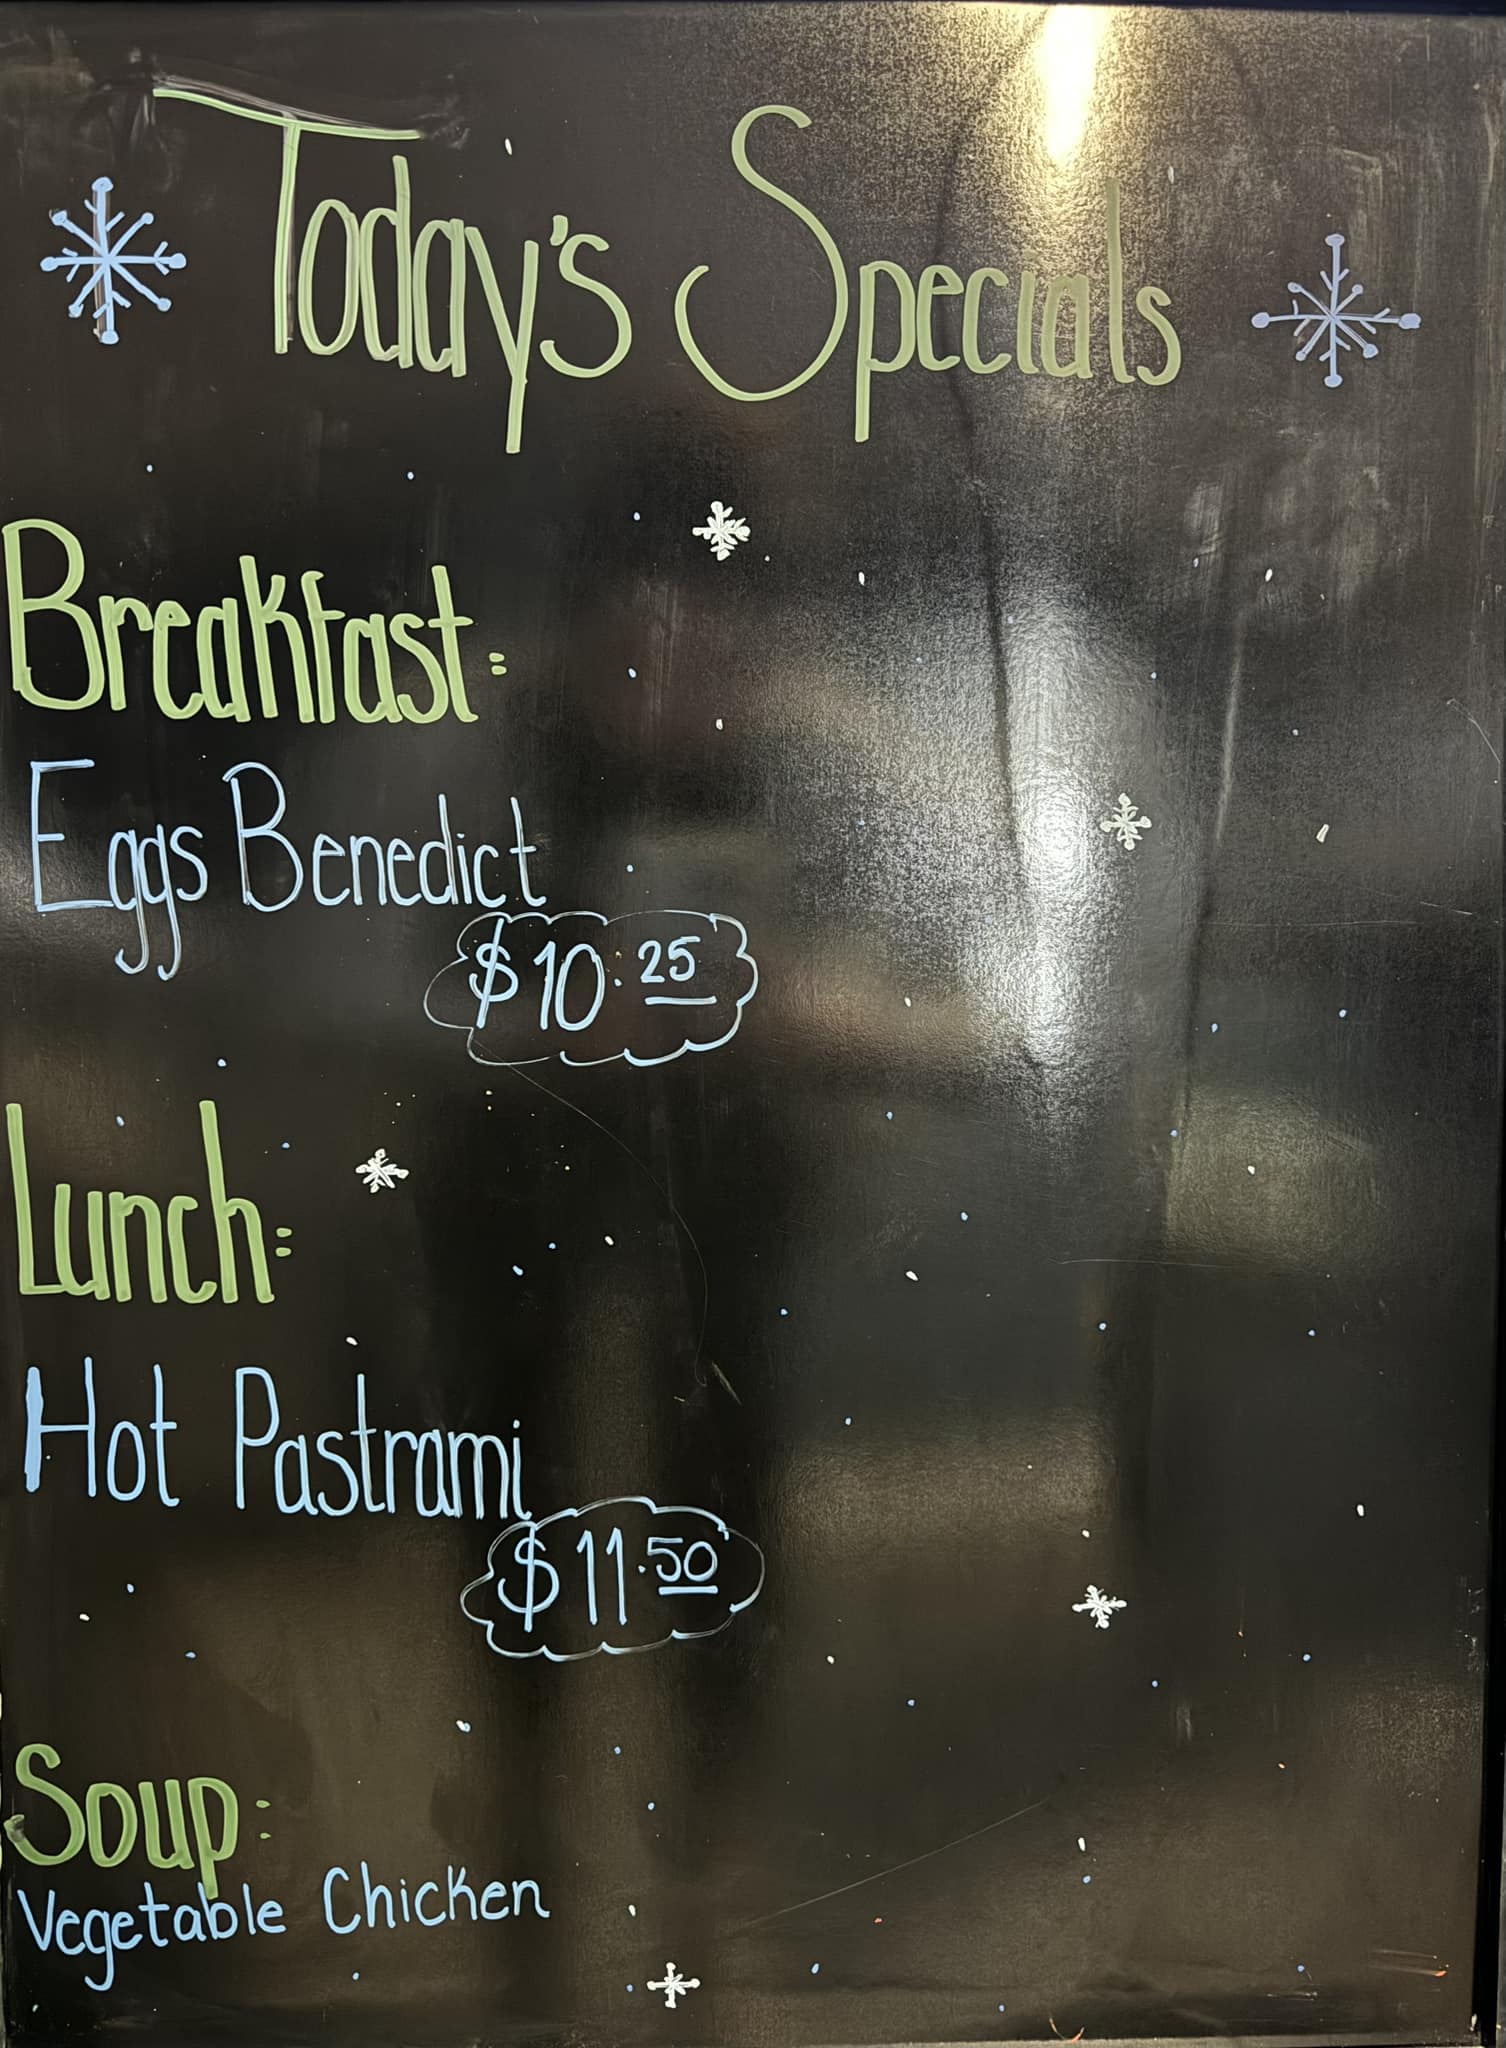 Today's Specials
Breakfast:
Eggs Benedict
$10.25
Lunch:
Hot Pastrami
$11.50
Soup:
Vegetable Chicken